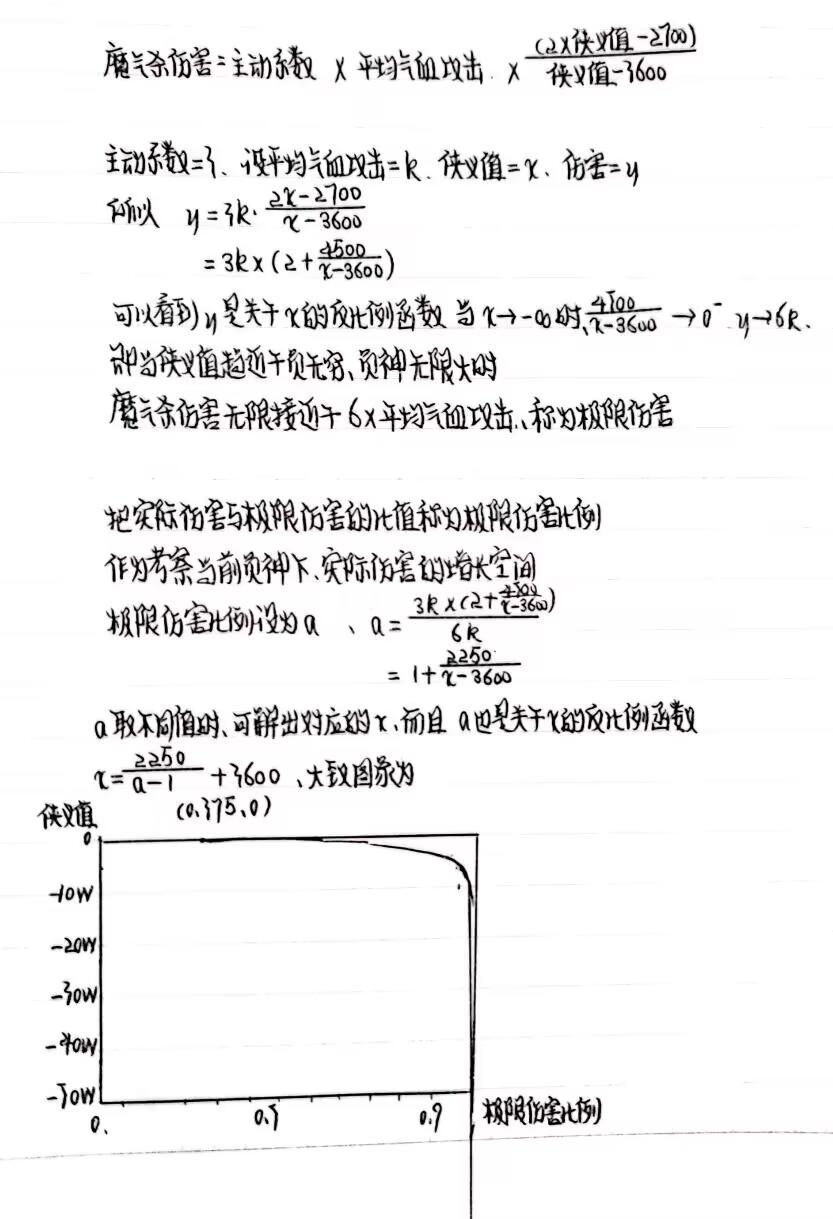 魔气杀伤害=主动系数 × 平均气血攻击 × (2×侠义值-2700)/侠义值-3600
主动系数=3、设平均气血攻击=k、侠义值=x、伤害=y
所以 y=3k·2x-2700/x-3600
=3k×(2+4500/x-3600)
可以看到y是关于x的反比例函数 当x→-∞时、4500/x-3600→0⁻ y→6k、
即当侠义值趋近于负无穷、负神无限大时
魔气杀伤害无限接近于6×平均气血攻击、称为极限伤害
把实际伤害与极限伤害的比值称为极限伤害比例
作为考察当前负神下、实际伤害的增长空间
极限伤害比例设为a 、a=3k×(2+4500/x-3600)/6k
=1+2250/x-3600
a取不同值时、可解出对应的x、而且 a也是关于x的反比例函数
x=2250/a-1+3600 、大致图象为
侠义值 (0.375、0)
0
-10W
-20W
-30W
-40W
-50W
0. 0.5 0.9 极限伤害比例